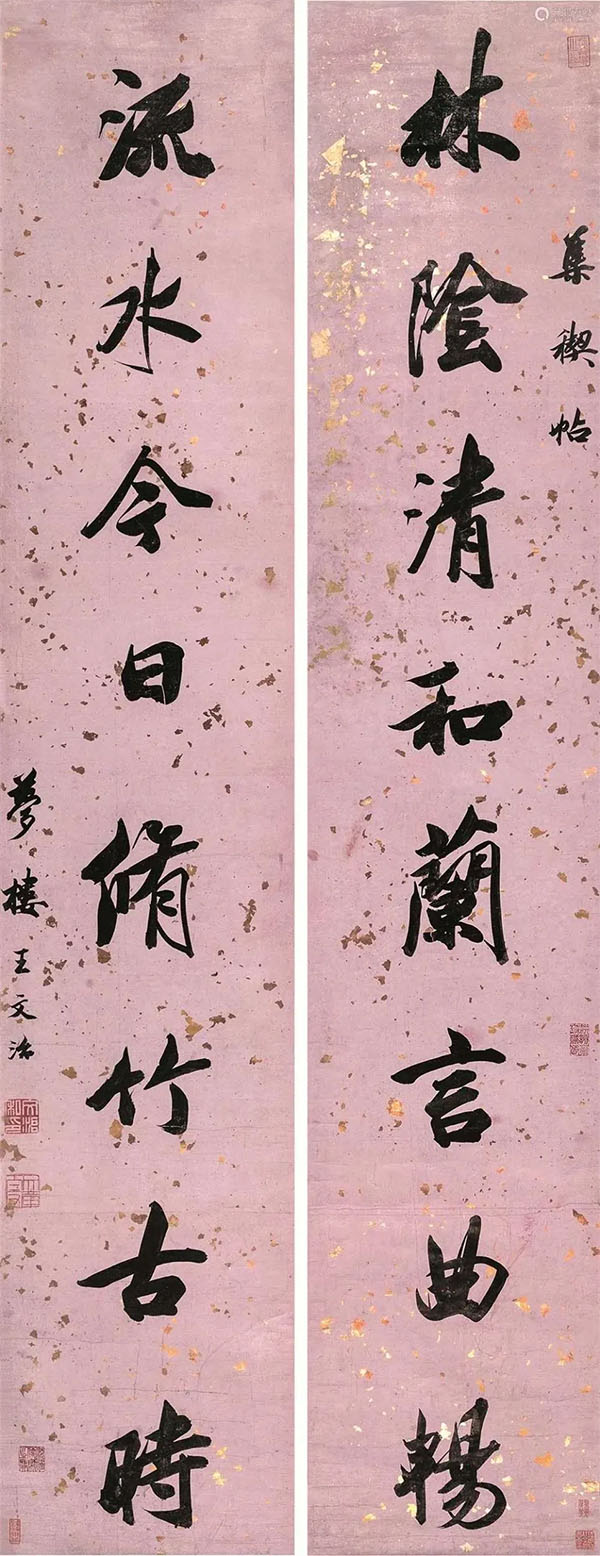 集禊帖
林陰清和蘭言曲暢
流水今日脩竹古時
夢樓王文治